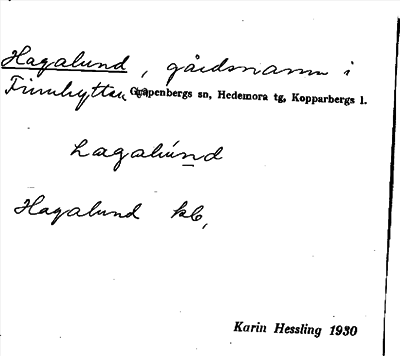 Hagalund, gårdsnamn i
Finnhyttan, Garpenbergs sn, Hedemora tg, Kopparbergs l.
hagalúnd
Hagalund kb,
Karin Hessling 1930